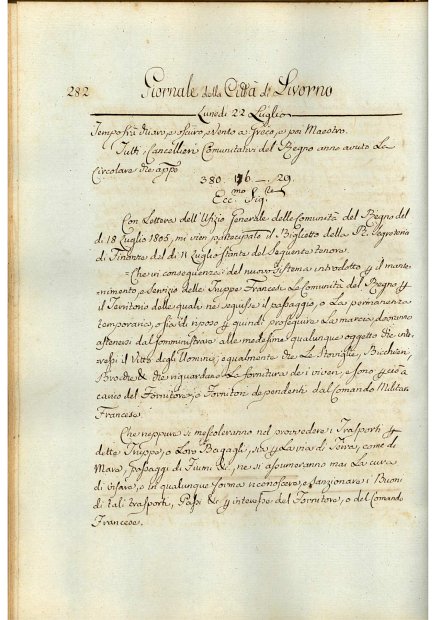 282 Giornale della Città di Livorno
Lunedi 22 Luglio
Tempo frà chiaro, e oscuro, e vento a Greco, e poi Maestro.
Tutti i Cancellieri Comunitativi del Regno anno avuto La
Circolare che appo
380. 176 — 29.
Ecc.mo Sig.re
Con Lettera dell'Ufizio Generale delle Comunità del Regno del
di 18 Luglio 1805, mi vien partecipato il Biglietto della R. Segreteria
di Finanze del di 11 Luglio stante del Seguente tenore.
= Che in conseguenza del nuovo Sistema introdotto p il mante-
nimento, e Servizio delle Truppe Francesi, Le Comunità del Regno p
il Territorio delle quali ne seguisse il passaggio, o La permanenza
temporaria, o sia di riposo p quindi proseguire La marcia, dovranno
astenersi dal somministrare alle medesime qualunque oggetto che inte-
ressi il Vitto degli Uomini, egualmente che Le Stoviglie, Bicchieri,
Brocche & che riguardano La fornitura de i viveri, e sono p ciò a
carico del Fornitore, o Fornitori dependenti dal Comando Militar
Francese.
Che neppure si mescoleranno nel provvedere i Trasporti p
dette Truppe, o Loro Bagagli, sia p La via di Terra, come di
Mare, passaggi di Fiumi &, ne si assumeranno mai La cura
di visare, o in qualunque forma riconoscere, e sanzionare i Buoni
di tali trasporti, Passi & p interesse del Fornitore, o del Comando
Francese.